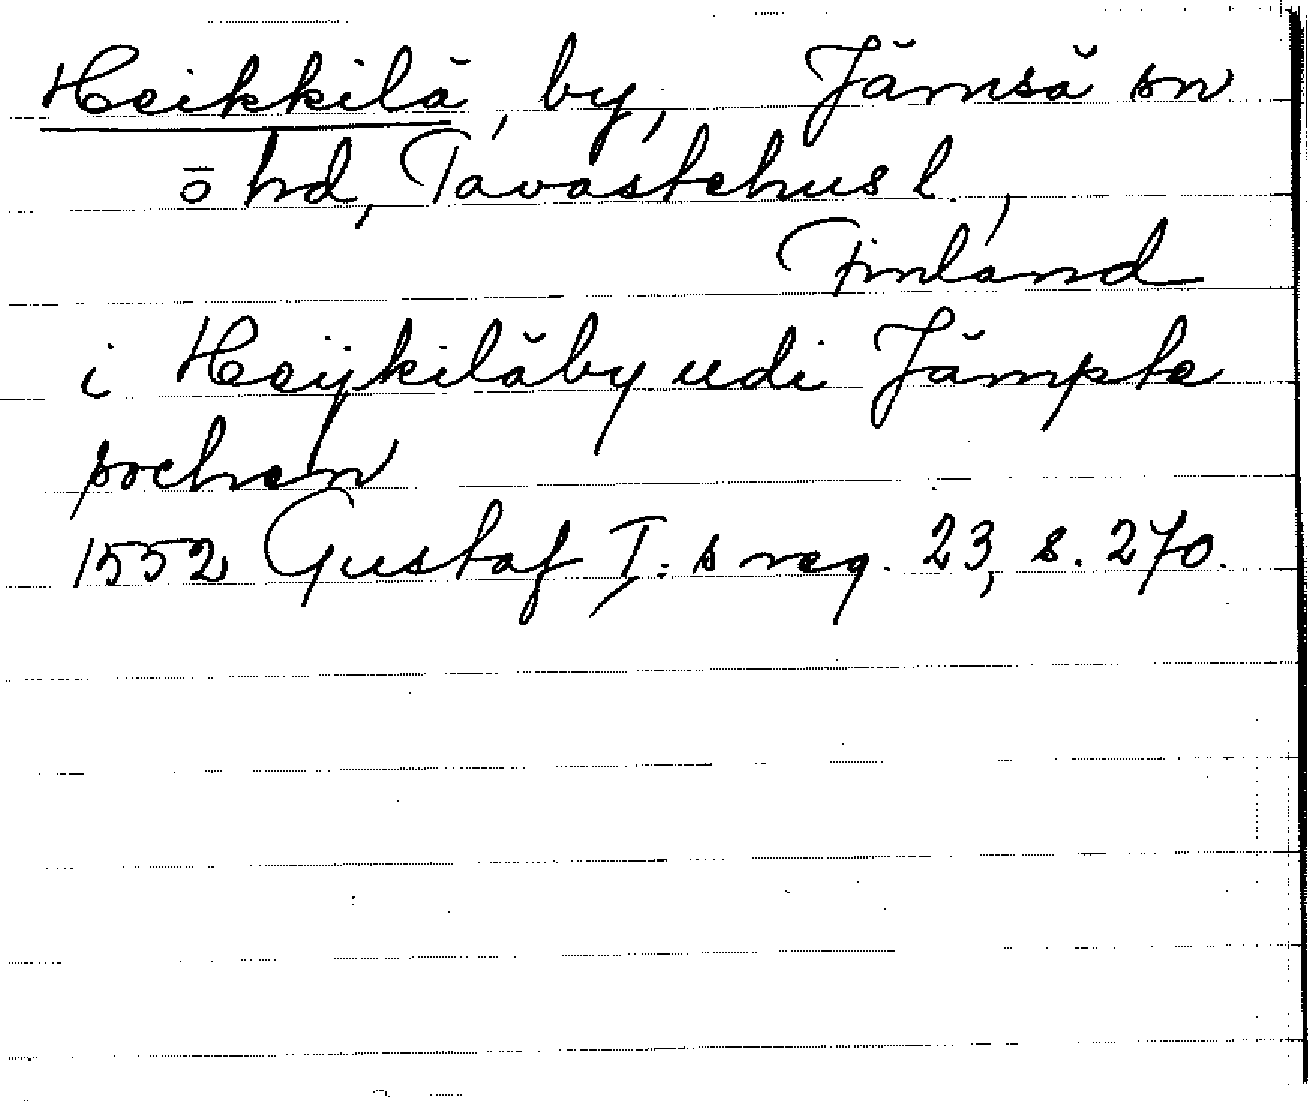 Heikkilä, by, Jämsä sn
ö hd, Tavastehus l.,
Finland
i Heÿkiläby udi Jämpte
sochen
1552 Gustaf I:s reg. 23, s. 270.